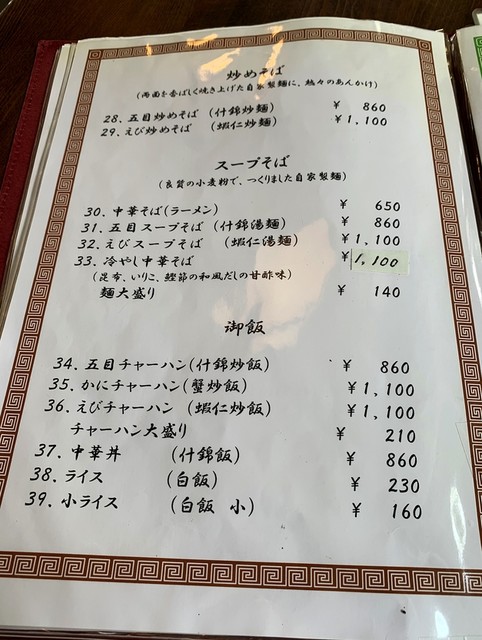 炒めそば
(両面を香ばしく焼き上げた自家製麺に、熱々のあんかけ)
28. 五目炒めそば (什錦炒麺) ¥ 860
29. えび炒めそば (蝦仁炒麺) ¥1,100
スープそば
(良質の小麦粉で、つくりました自家製麺)
30. 中華そば(ラーメン) ¥ 650
31. 五目スープそば (什錦湯麺) ¥ 860
32. えびスープそば (蝦仁湯麺) ¥1,100
33. 冷やし中華そば ¥1,100
(昆布、いりこ、鰹節の和風だしの甘酢味)
麺大盛り ¥ 140
御飯
34. 五目チャーハン(什錦炒飯) ¥ 860
35. かにチャーハン(蟹炒飯) ¥1,100
36. えびチャーハン (蝦仁炒飯) ¥1,100
チャーハン大盛り ¥ 210
37. 中華丼 (什錦飯) ¥ 860
38. ライス (白飯) ¥ 230
39. 小ライス (白飯 小) ¥ 160